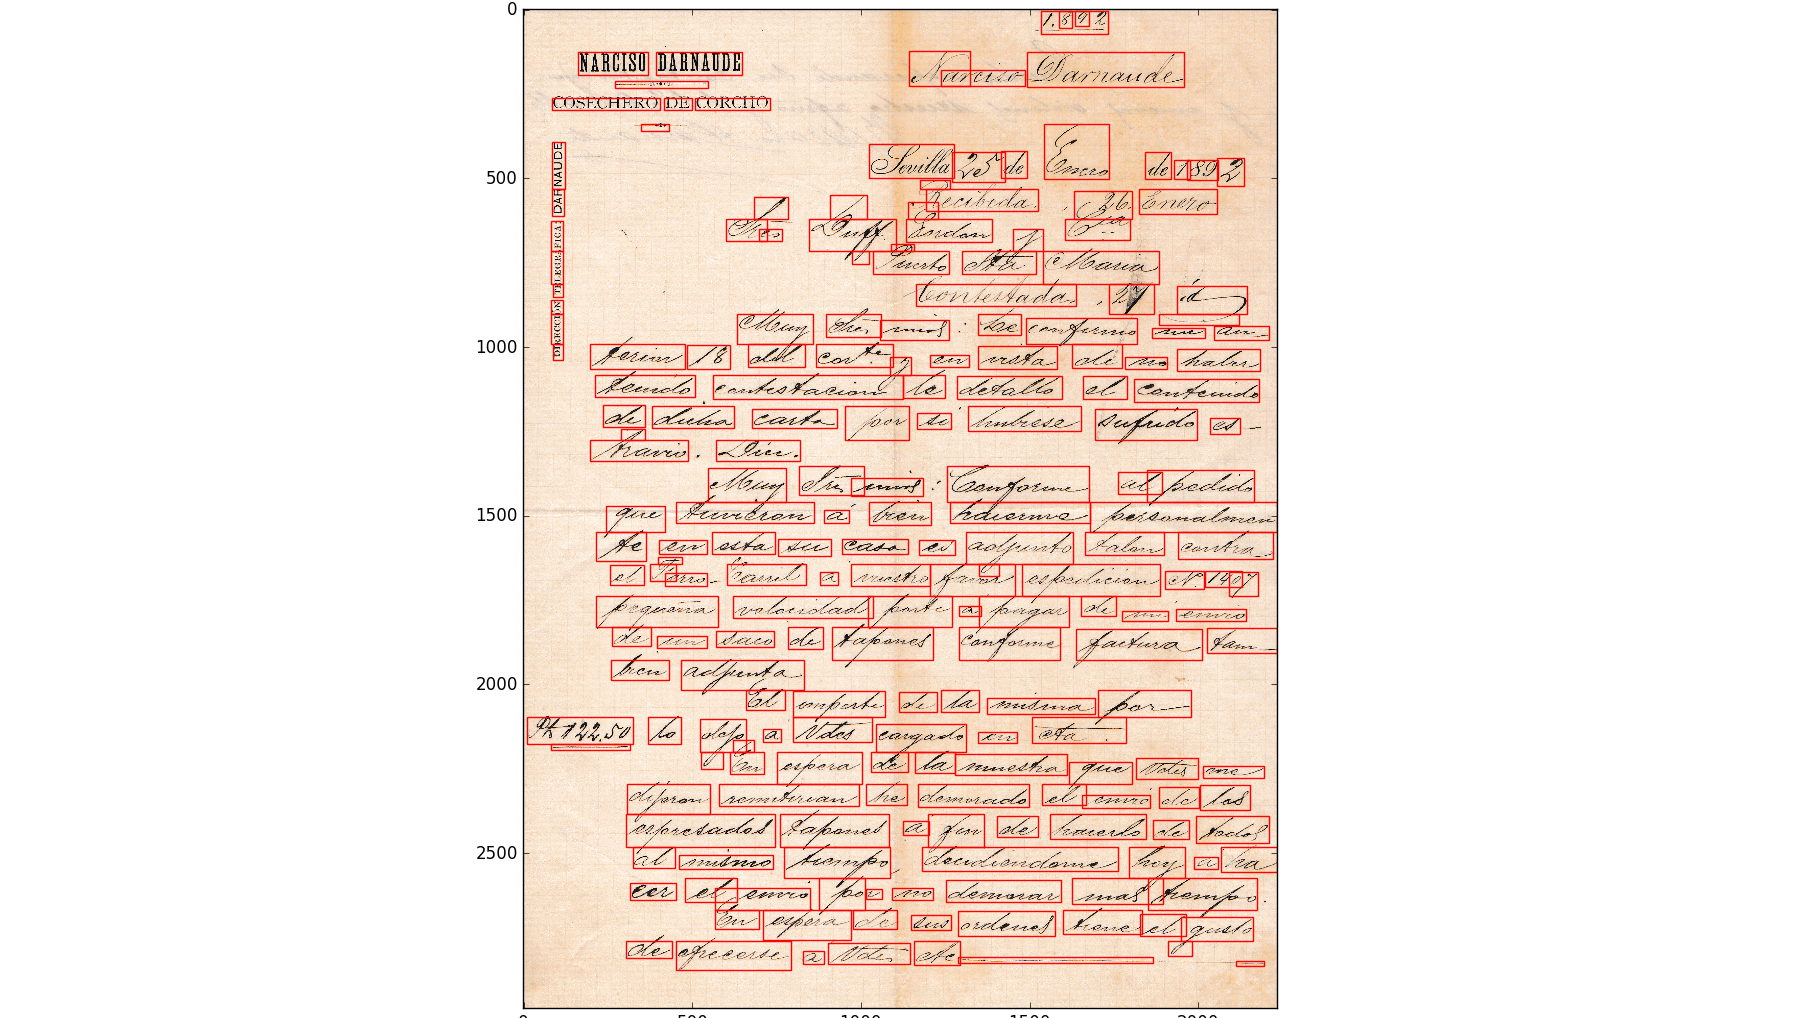 1.892
NARCISO DARNAUDE
Narciso Darnaude
COSECHERO DE CORCHO
DIRECCIÓN TELEGRÁFICA: DARNAUDE
Sevilla 25 de Enero de 1892
Recibida. 26. Enero
Sres Duff Gordon y Cia
Puerto Sta Maria
Contestada. 27 id
Muy Sres mios: Le confirmo mi an-
terior 18 del corte. y en vista de no haber
tenido contestacion le detallo el contenido
de dicha carta por si hubiese sufrido es-
travio. Dice.
Muy Sres mios: Conforme al pedido
que tuvieron á bien hacerme personalmen
te en esta su casa es adjunto talon contra
el Ferro-Carril a vuestro favor espedicion Nº 1407
pequeña velocidad porte a pagar de mi envio
de un saco de tapones conforme factura tam-
bien adjunta
El importe de la misma por
Pts 122.50 lo dejo a Vdes cargado en cta.
En espera de la muestra que Vdes me
dijeron remitirian he demorado el envio de los
espresados tapones a fin de hacerlo de todos
al mismo tiempo, decidiendome hoy a ha
cer el envio por no demorar mas tiempo.
En espera de sus ordenes tiene el gusto
de ofrecerse a Vdes etc
0
500
1000
1500
2000
2500
0 500 1000 1500 2000